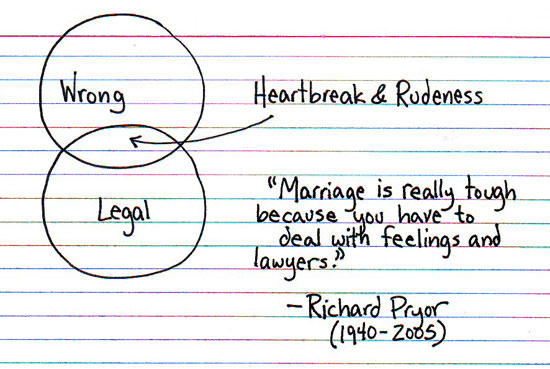 Wrong
Heartbreak & Rudeness
Legal
"Marriage is really tough
because you have to
deal with feelings and
lawyers."
-Richard Pryor
(1940-2005)